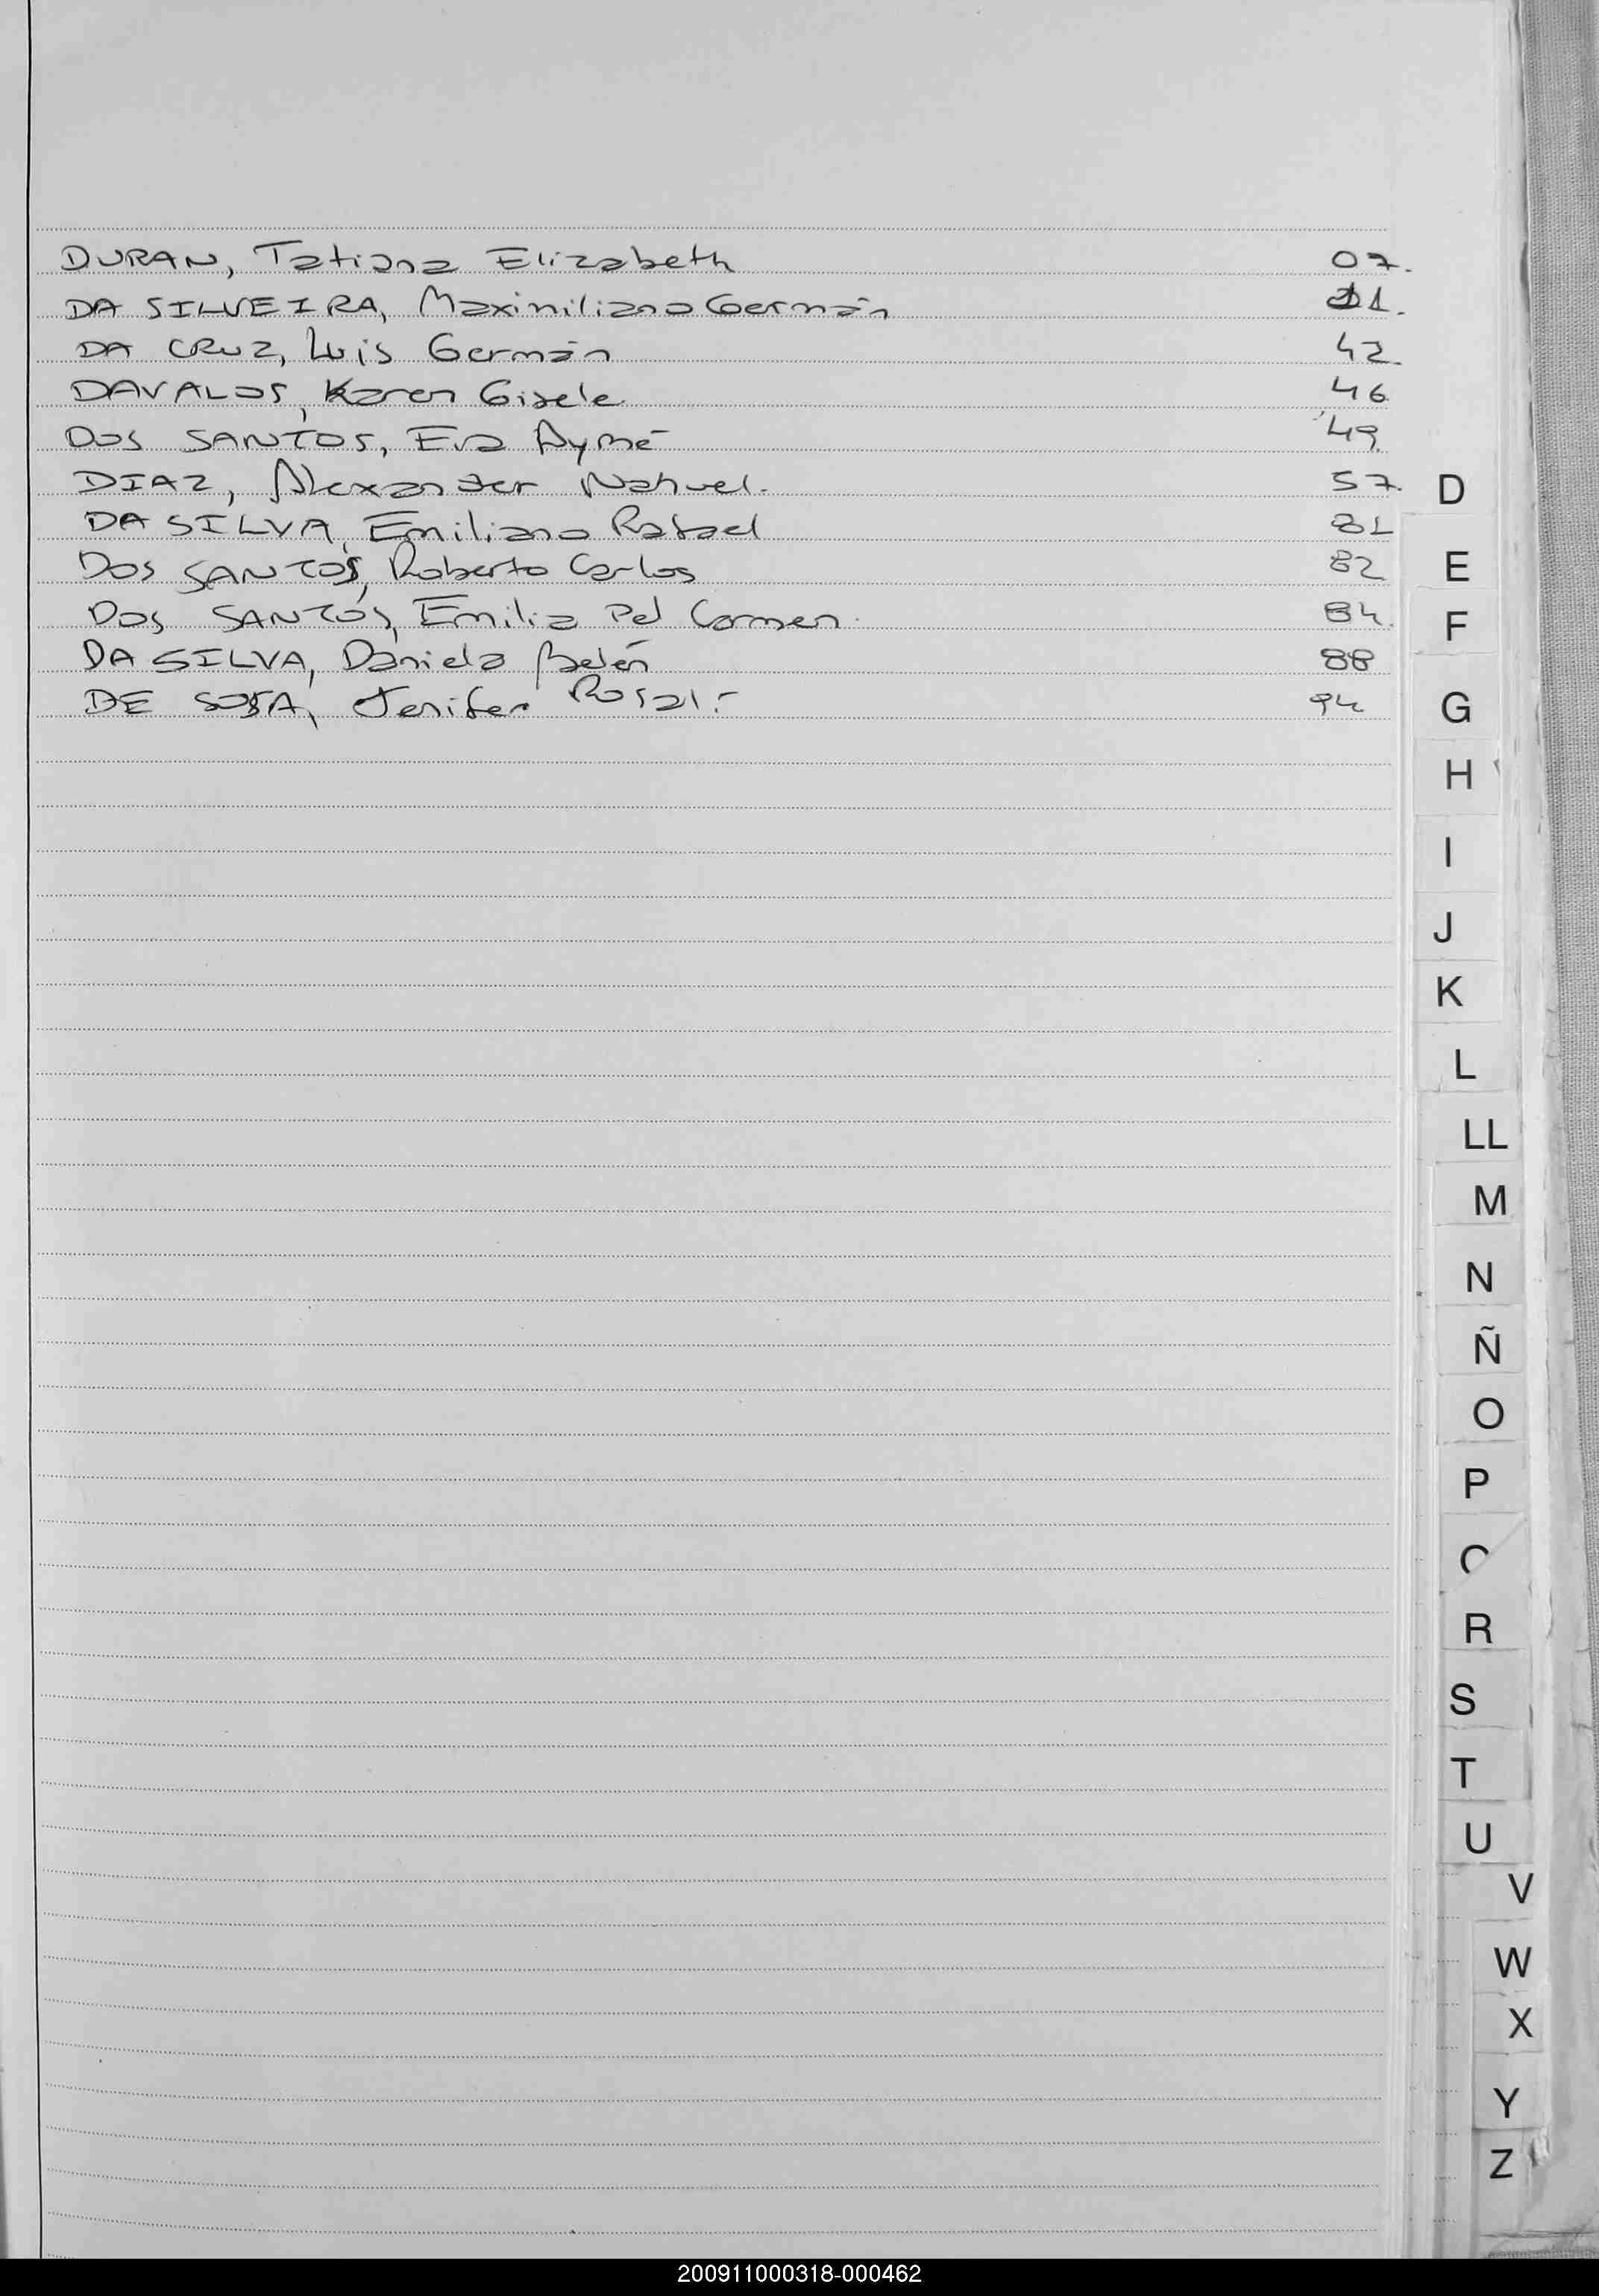 DURAN, Tatiana Elizabeth 07.
DA SILVEIRA, Maximiliano Germán 11.
DA CRUZ, Luis Germán 42.
DAVALOS, Karen Gisele 46
DOS SANTOS, Eva Aymé 49
DIAZ, Alexander Nahuel. 57.
DA SILVA, Emiliano Rafael 81
DOS SANTOS, Roberto Carlos 82
DOS SANTOS, Emilia Del Carmen. 84.
DA SILVA, Daniela Belén 88
DE SOSA, Jenifer 94
D
E
F
G
H
I
J
K
L
LL
M
N
Ñ
O
P
R
S
T
U
V
W
X
Y
Z
200911000318-000462